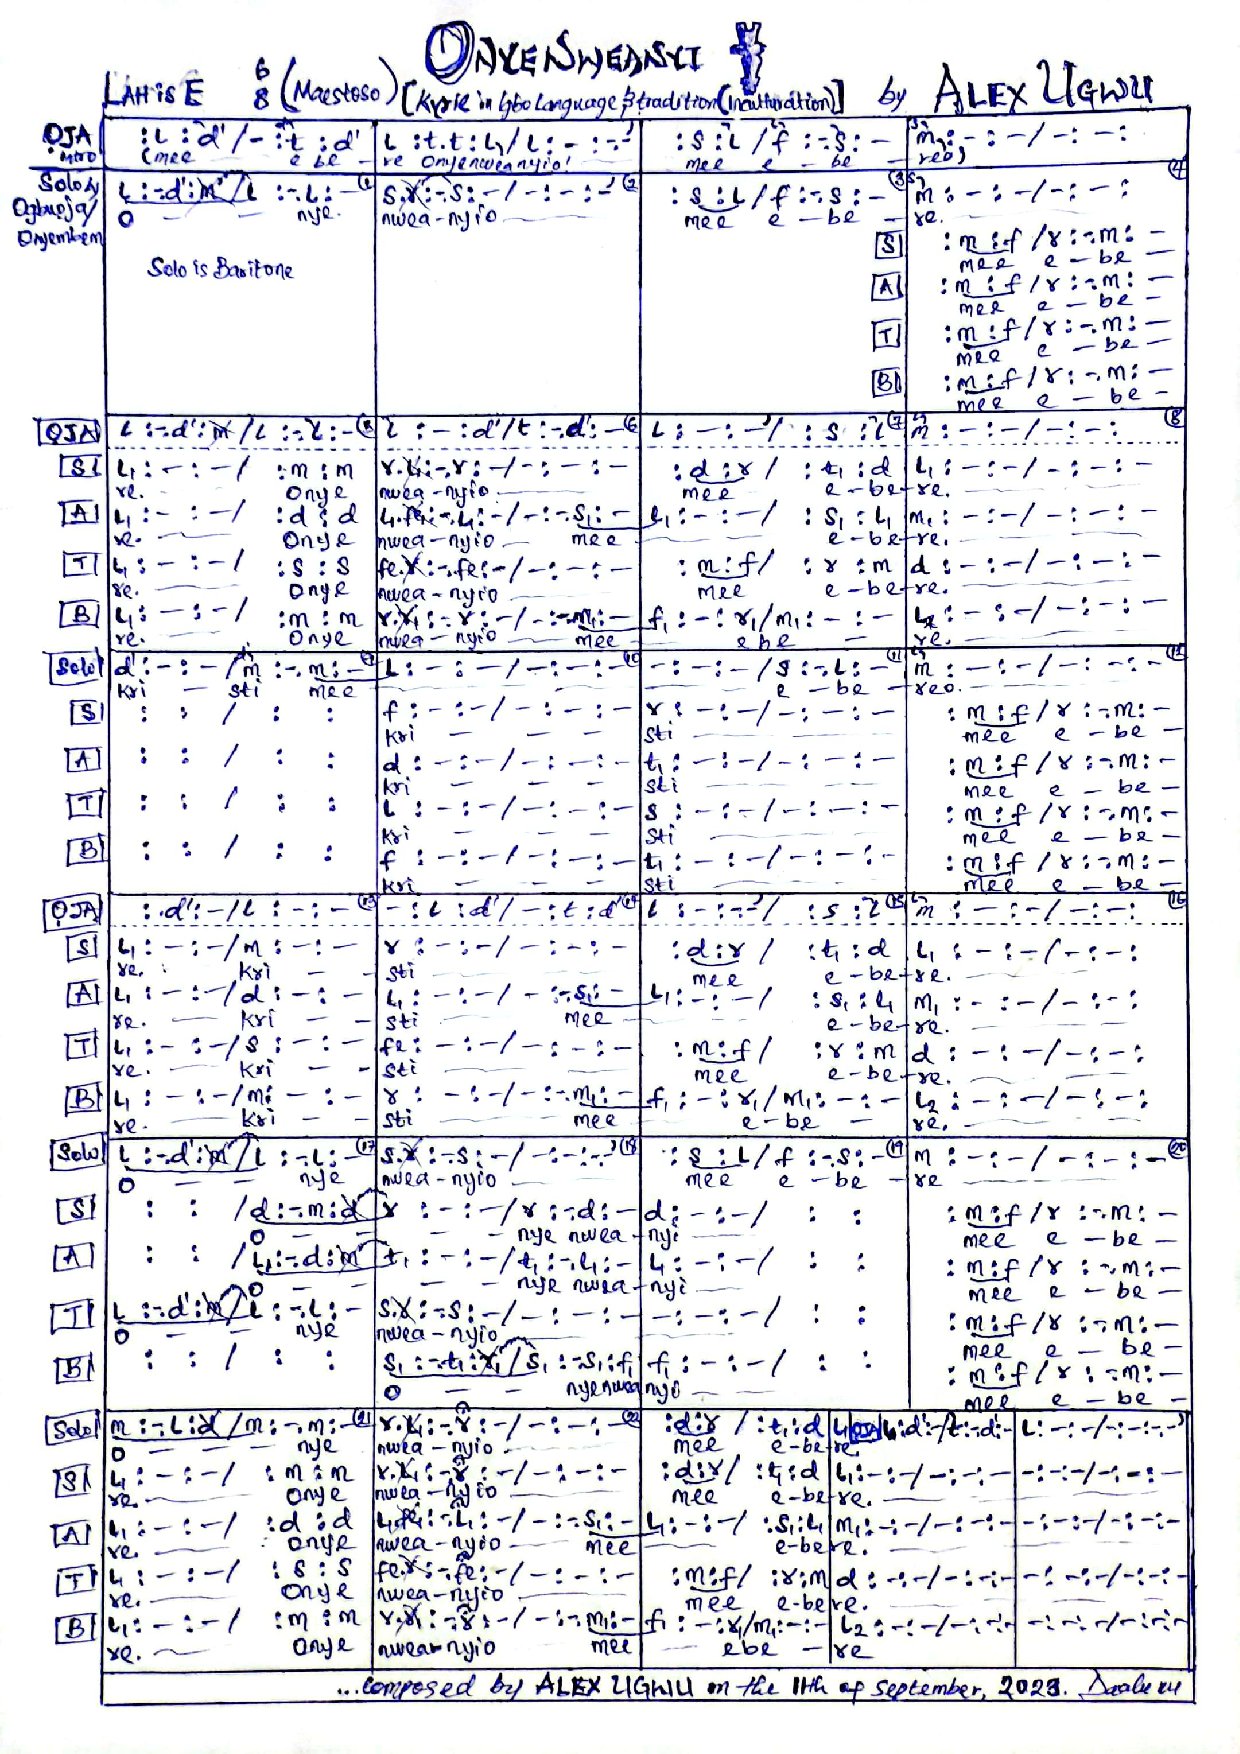 ONYENWEANYI
LAH is E 6/8 (Maestoso) [Kyrie in Igbo Language & tradition (Inculturation)] by ALEX UGWU
OJA intro :l :d' / - :t :d' l :t.t :l / l :- :- :s :l / f :-.s :- m :- :- / - :- :
(mee e be - re Onyenweanyio! mee e - be - reo)
Solo by Ogbuoja/Onyembem l :-.d' :m' / l :-.l :- (1) s.r :-.s :- / - :- :- (2) :s :l / f :-.s :- (3) m :- :- / - :- : (4)
O - - nye. nwea-nyio mee e - be - re.
Solo is Baritone
S :m :f / r :-.m :-
mee e - be -
A :m :f / r :-.m :-
mee e - be -
T :m :f / r :-.m :-
mee e - be -
B :m :f / r :-.m :-
mee e - be -
OJA l :-.d' :m' / l :-.l :- (5) l :- :d' / t :-.d' :- (6) l :- :- / :s :l (7) m :- :- / - :- :- (8)
S l₁ :- :- / :m :m r.l₁ :-.r :- / - :- :- :d :r / :t₁ :d l₁ :- :- / - :- :-
re. Onye nwea-nyio mee e-be-re.
A l₁ :- :- / :d :d l₁.fe₁ :-.l₁ :- / - :-.s₁ :- l₁ :- :- / :s₁ :l₁ m₁ :- :- / - :- :-
re. Onye nwea-nyio mee e-be-re.
T l₁ :- :- / :s :s fe.r :-.fe :- / - :- :- :m :f / :r :m d :- :- / - :- :-
re. Onye nwea-nyio mee e-be-re.
B l₁ :- :- / :m :m r.r₁ :-.r :- / - :-.m₁ :- f₁ :- :r₁ / m₁ :- :- l₂ :- :- / - :- :-
re. Onye nwea-nyio mee e be - re.
Solo d' :- :- / m :-.m :- (9) l :- :- / - :- :- (10) - :- :- / s :-.l :- (11) m :- :- / - :- :- (12)
kri - sti mee e - be - reo.
S : : / : : f :- :- / - :- :- r :- :- / - :- :- :m :f / r :-.m :-
kri - - sti mee e - be -
A : : / : : d :- :- / - :- :- t₁ :- :- / - :- :- :m :f / r :-.m :-
kri - - sti mee e - be -
T : : / : : l :- :- / - :- :- s :- :- / - :- :- :m :f / r :-.m :-
kri - - sti mee e - be -
B : : / : : f :- :- / - :- :- t₁ :- :- / - :- :- :m :f / r :-.m :-
kri - - sti mee e - be -
OJA :.d' :- / l :- :- (13) - :l :d' / - :t :d' (14) l :- :- / :s :l (15) m :- :- / - :- :- (16)
S l₁ :- :- / m :- :- r :- :- / - :- :- :d :r / :t₁ :d l₁ :- :- / - :- :-
re. kri - - sti mee e-be-re.
A l₁ :- :- / d :- :- l₁ :- :- / - :-.s₁ :- l₁ :- :- / :s₁ :l₁ m₁ :- :- / - :- :-
re. kri - - sti mee e-be-re.
T l₁ :- :- / s :- :- fe :- :- / - :- :- :m :f / :r :m d :- :- / - :- :-
re. kri - - sti mee e-be-re.
B l₁ :- :- / m :- :- r :- :- / - :-.m₁ :- f₁ :- :r₁ / m₁ :- :- l₂ :- :- / - :- :-
re. kri - - sti mee e - be - re.
Solo l :-.d' :m' / l :-.l :- (17) s.r :-.s :- / - :- :- (18) :s :l / f :-.s :- (19) m :- :- / - :- :- (20)
O - - nye nwea-nyio mee e - be - re
S : : / d :-.m :d r :- :- / r :-.d :- d :- :- / : : :m :f / r :-.m :-
O - - - - nye nwea-nyi mee e - be -
A : : / l₁ :-.d :m t₁ :- :- / t₁ :-.l₁ :- l₁ :- :- / : : :m :f / r :-.m :-
O - - - nye nwea-nyi mee e - be -
T l :-.d' :m' / l :-.l :- s.r :-.s :- / - :- :- - :- :- / : : :m :f / r :-.m :-
O - - nye nwea-nyio mee e - be -
B : : / : : s₁ :-.t₁ :r₁ / s₁ :-.s₁ :f₁ f₁ :- :- / : : :m :f / r :-.m :-
O - - nyenwea nyio mee e - be -
Solo m :-.l :d' / m :-.m :- (21) r.l₁ :-.r :- / - :- :- (22) :d :r / :t₁ :d l₁ OJA l :d' :- / t :-.d' :- l :- :- / - :- :-
O - - - nye nwea-nyio mee e-be-re.
S l₁ :- :- / :m :m r.l₁ :-.r :- / - :- :- :d :r / :t₁ :d l₁ :- :- / - :- :- - :- :- / - :- :-
re. Onye nwea-nyio mee e-be-re.
A l₁ :- :- / :d :d l₁.fe₁ :-.l₁ :- / - :-.s₁ :- l₁ :- :- / :s₁ :l₁ m₁ :- :- / - :- :- - :- :- / - :- :-
re. Onye nwea-nyio mee e-be re.
T l₁ :- :- / :s :s fe.r :-.fe :- / - :- :- :m :f / :r :m d :- :- / - :- :- - :- :- / - :- :-
re. Onye nwea-nyio mee e-be re.
B l₁ :- :- / :m :m r.r₁ :-.r :- / - :-.m₁ :- f₁ :- :r₁ / m₁ :- :- l₂ :- :- / - :- :- - :- :- / - :- :-
re. Onye nwea-nyio mee ebe - re
...composed by ALEX UGWU on the 11th of september, 2023. Daalu nu